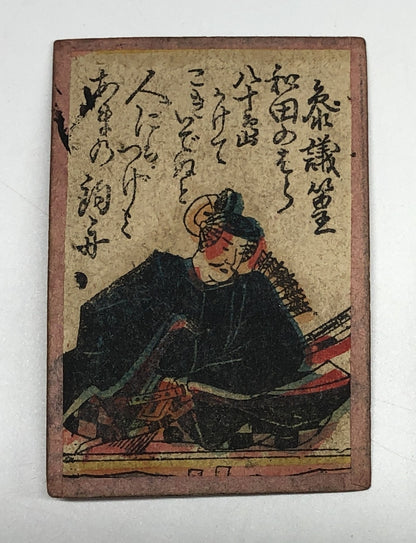 参議篁
和田のはら
八十島
かけて
こぎ
いでぬと
人には
つげよ
あまの釣舟